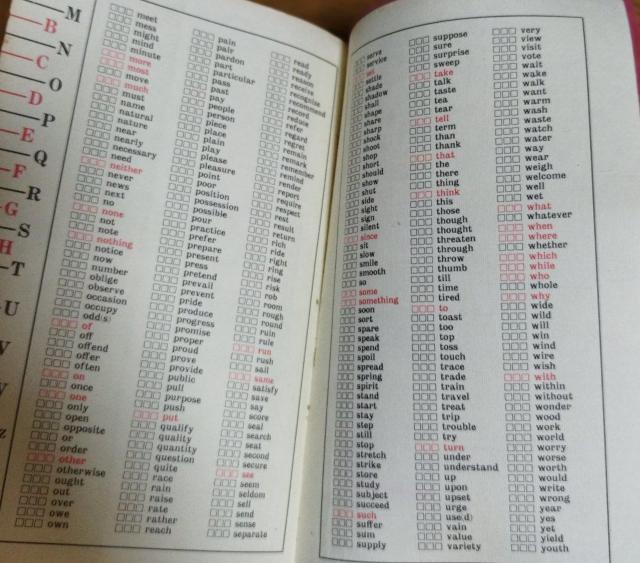 M
B
N
C
O
D
P
E
Q
F
R
G
S
H
T
U
V
meet
mess
might
mind
minute
more
most
move
much
must
name
natural
nature
near
nearly
necessary
need
neither
never
news
next
no
none
not
note
nothing
notice
now
number
oblige
observe
occasion
occupy
odd(s)
of
off
offend
offer
often
on
once
one
only
open
opposite
or
order
other
otherwise
ought
out
over
owe
own
pain
pair
pardon
part
particular
pass
past
pay
people
person
piece
place
plain
play
please
pleasure
point
poor
position
possession
possible
pour
practice
prefer
prepare
present
press
pretend
prevail
prevent
pride
produce
progress
promise
proper
proud
prove
provide
public
pull
purpose
push
put
qualify
quality
quantity
question
quite
race
rain
raise
rate
rather
reach
read
ready
reason
receive
recognise
recommend
record
reduce
refer
regard
regret
remain
remark
remember
remind
render
report
require
respect
rest
result
return
rich
ride
right
ring
rise
risk
rob
room
rough
round
ruin
rule
run
rush
sail
same
satisfy
save
say
score
seal
search
seat
second
secure
see
seem
seldom
sell
send
sense
separate
serve
service
set
settle
shade
shadow
shall
shape
share
sharp
shock
shoot
shop
short
should
show
shut
side
sight
sign
silent
since
sit
slow
smile
smooth
so
some
something
soon
sort
spare
speak
spend
spoil
spread
spring
spirit
stand
start
stay
step
still
stop
stretch
strike
store
study
subject
succeed
such
suffer
sum
supply
suppose
sure
surprise
sweep
take
talk
taste
tea
tear
tell
term
than
thank
that
the
there
thing
think
this
those
though
thought
threaten
through
throw
thumb
till
time
tired
to
toast
too
top
toss
touch
trace
trade
train
travel
treat
trip
trouble
try
turn
under
understand
up
upon
upset
urge
use(d)
vain
value
variety
very
view
visit
vote
wait
wake
walk
want
warm
wash
waste
watch
water
way
wear
weigh
welcome
well
wet
what
whatever
when
where
whether
which
while
who
whole
why
wide
wild
will
win
wind
wire
wish
with
within
without
wonder
wood
work
world
worry
worse
worth
would
write
wrong
year
yes
yet
yield
youth